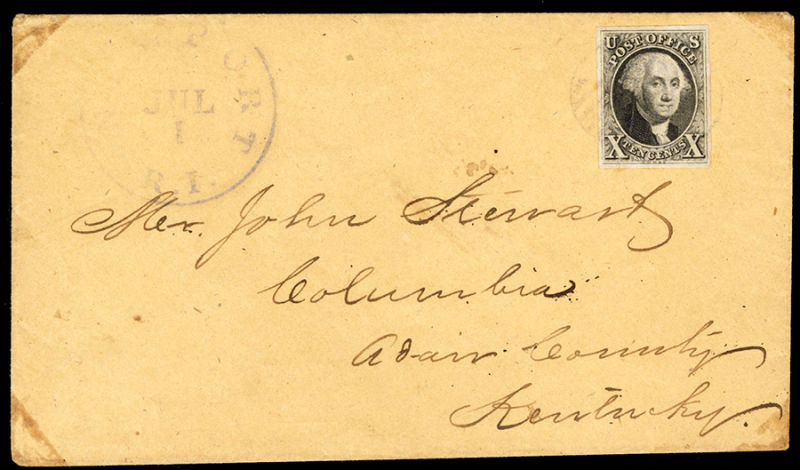 PORT
JUL
1
R.I.
U S
POST OFFICE
X TEN CENTS X
Mr. John Stewart
Columbia
Adair County
Kentucky.